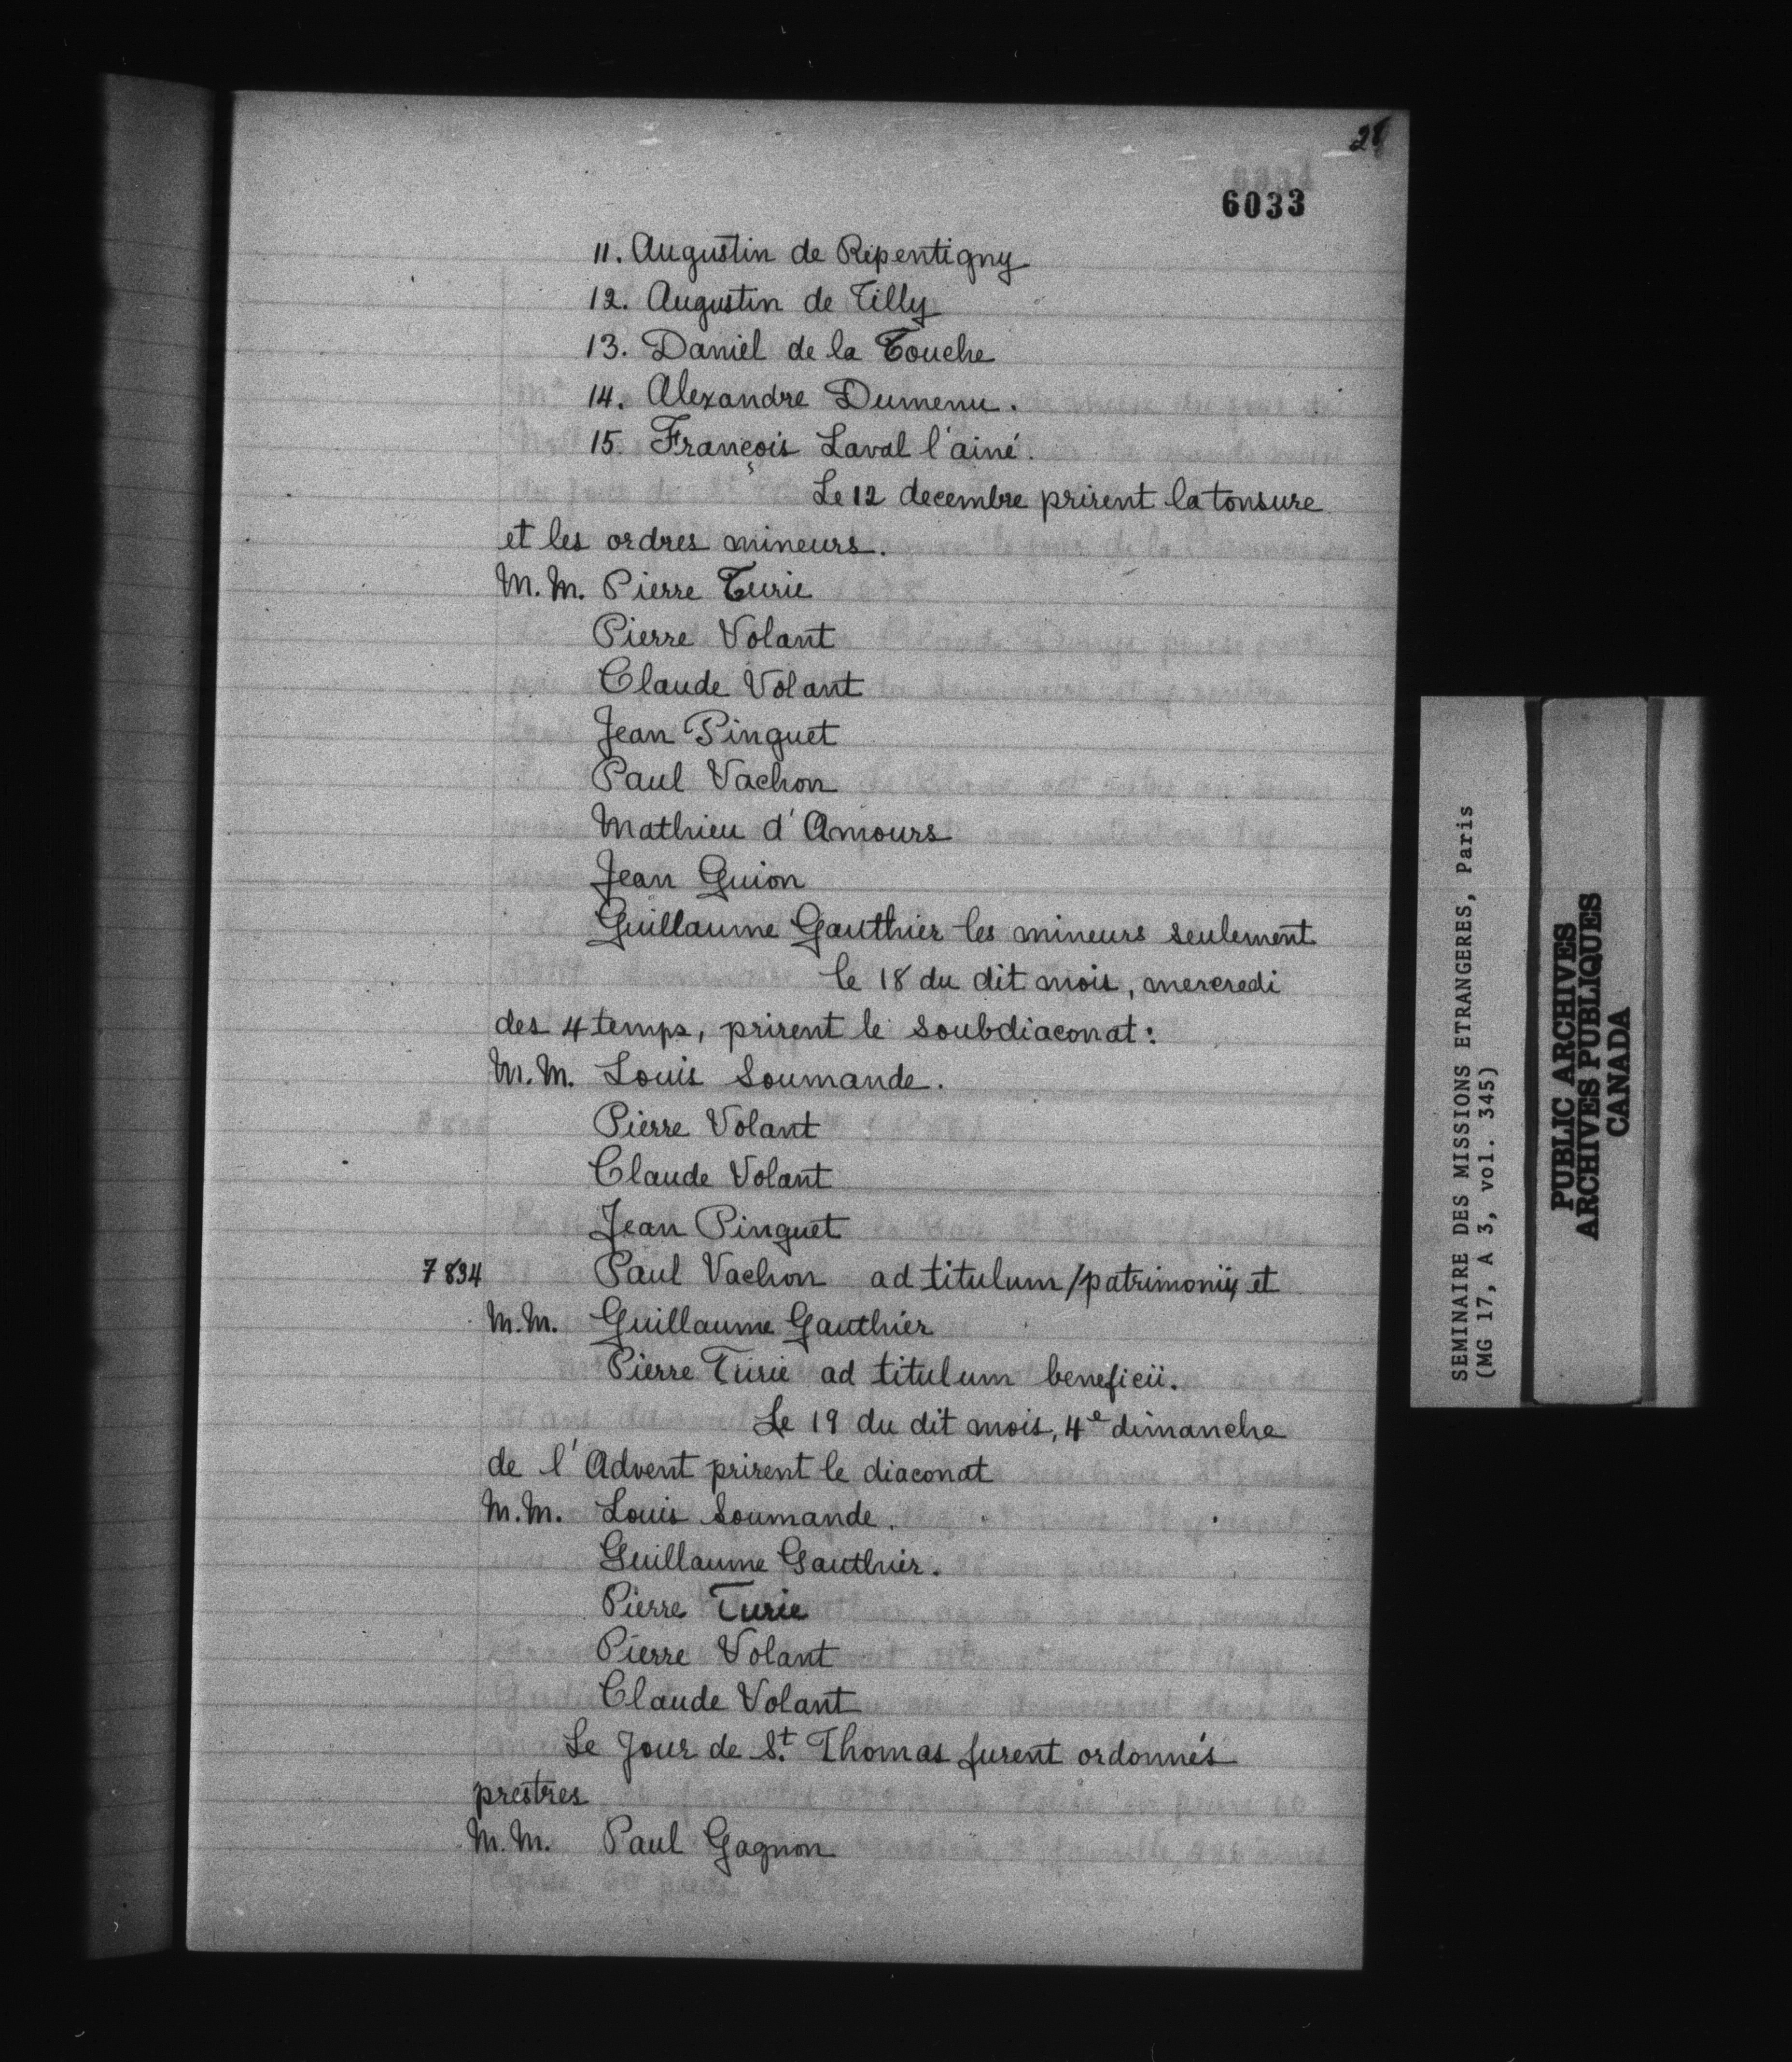 6033
11. Augustin de Repentigny
12. Augustin de Tilly
13. Daniel de la Touche
14. Alexandre Dumenu.
15. François Laval l'ainé.
Le 12 decembre prirent la tonsure
et les ordres mineurs.
M.M. Pierre Turie
Pierre Volant
Claude Volant
Jean Pinguet
Paul Vachon
Mathieu d'Amours
Jean Guion
Guillaume Gauthier les mineurs seulement
le 18 du dit mois, mercredi
des 4 temps, prirent le soubdiaconat:
M.M. Louis Soumande.
Pierre Volant
Claude Volant
Jean Pinguet
7834 Paul Vachon ad titulum /patrimonii/ et
M.M. Guillaume Gauthier
Pierre Turie ad titulum beneficii.
Le 19 du dit mois, 4e dimanche
de l'Advent prirent le diaconat
M.M. Louis Soumande.
Guillaume Gauthier.
Pierre Turie
Pierre Volant
Claude Volant
Le Jour de St. Thomas furent ordonnés
prestres
M.M. Paul Gagnon
SEMINAIRE DES MISSIONS ETRANGERES, Paris
(MG 17, A 3, vol. 345)
PUBLIC ARCHIVES
ARCHIVES PUBLIQUES
CANADA